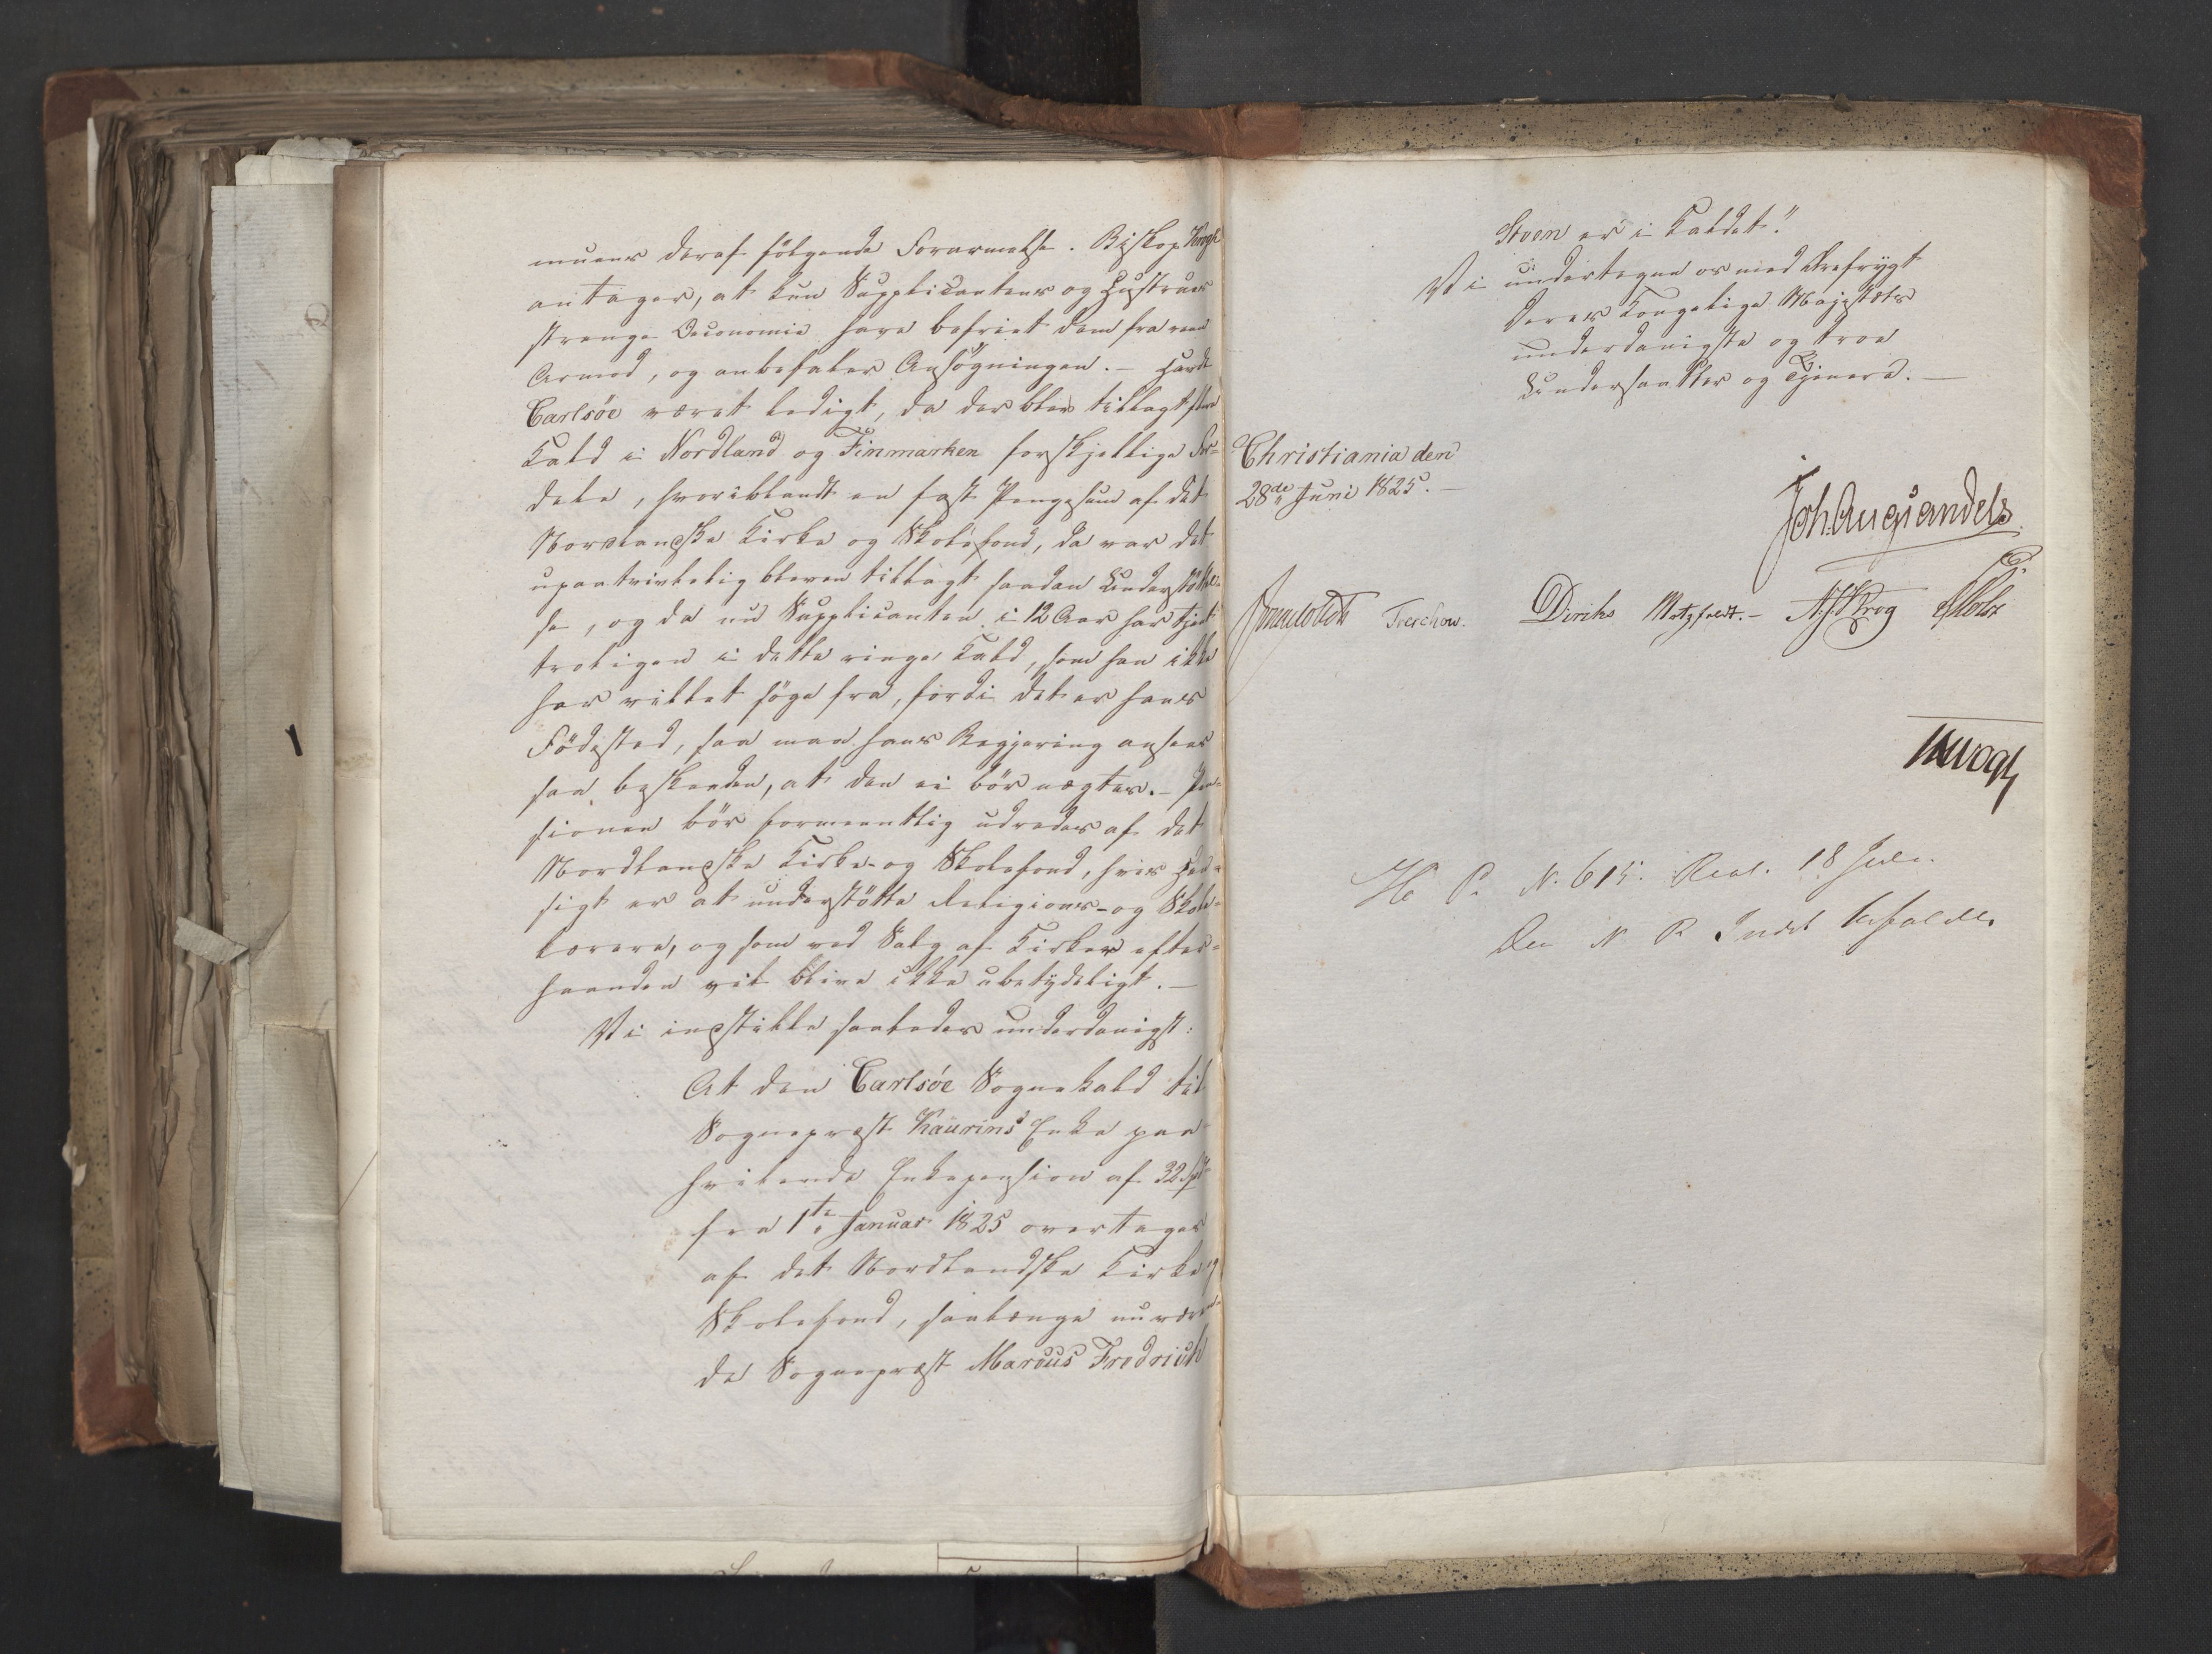 muens deraf følgende Forarmelse. Biskop Krogh
antager, at kun Supplicantens og Hustrues
strenge Oeconomie have befriet dem fra reen
Armod, og anbefaler Ansøgningen. - Havde
Carlsöe været ledigt, da der blev tillagt flere
Kald i Nordland og Finmarken forskjellige For=
dele, hvoriblandt en fast Pengesum af det
Nordlandske Kirke og Skolefond, da var det
upaatvivlelig bleven tillagt saadan Understøttel=
se, og da nu Supplicanten i 12 Aar har tjent
troligen i dette ringe Kald, som han ikke
har villet søge fra, fordi det er hans
Fødested, saa maa hans Begjæring ansees
saa beskeden, at den ei bør nægtes. - Pen=
sionen bør formeentlig udredes af det
Nordlandske Kirke- og Skolefond, hvis Hen=
sigt er at understøtte Religions- og Skole=
lærere, og som ved Salg af Kirker efter=
haanden vil blive ikke ubetydeligt. -
Vi indstille saaledes underdanigst:
At den Carlsöe Sognekald til
Sognepræst Kaurins Enke paa
hvilende Enkepension af 32 Spd
fra 1te Januar 1825 overtages
af det Nordlandske Kirke og
Skolefond, saalænge nuværen=
de Sognepræst Marcus Fredrich
Steen er i Kaldet."
Vi undertegne os med Ærefrygt
Deres Kongelige Majestæts
underdanigste og troe
Undersaatter og Tjenere. -
Christiania den
28de Juni 1825. -
Joh. Aug. Sandels
Sommerhielm Treschow. Diriks Motzfeldt. - Krog
Krogh
H P. N. 615. Res. 18 Juli.
Den N R Indst bifaldes